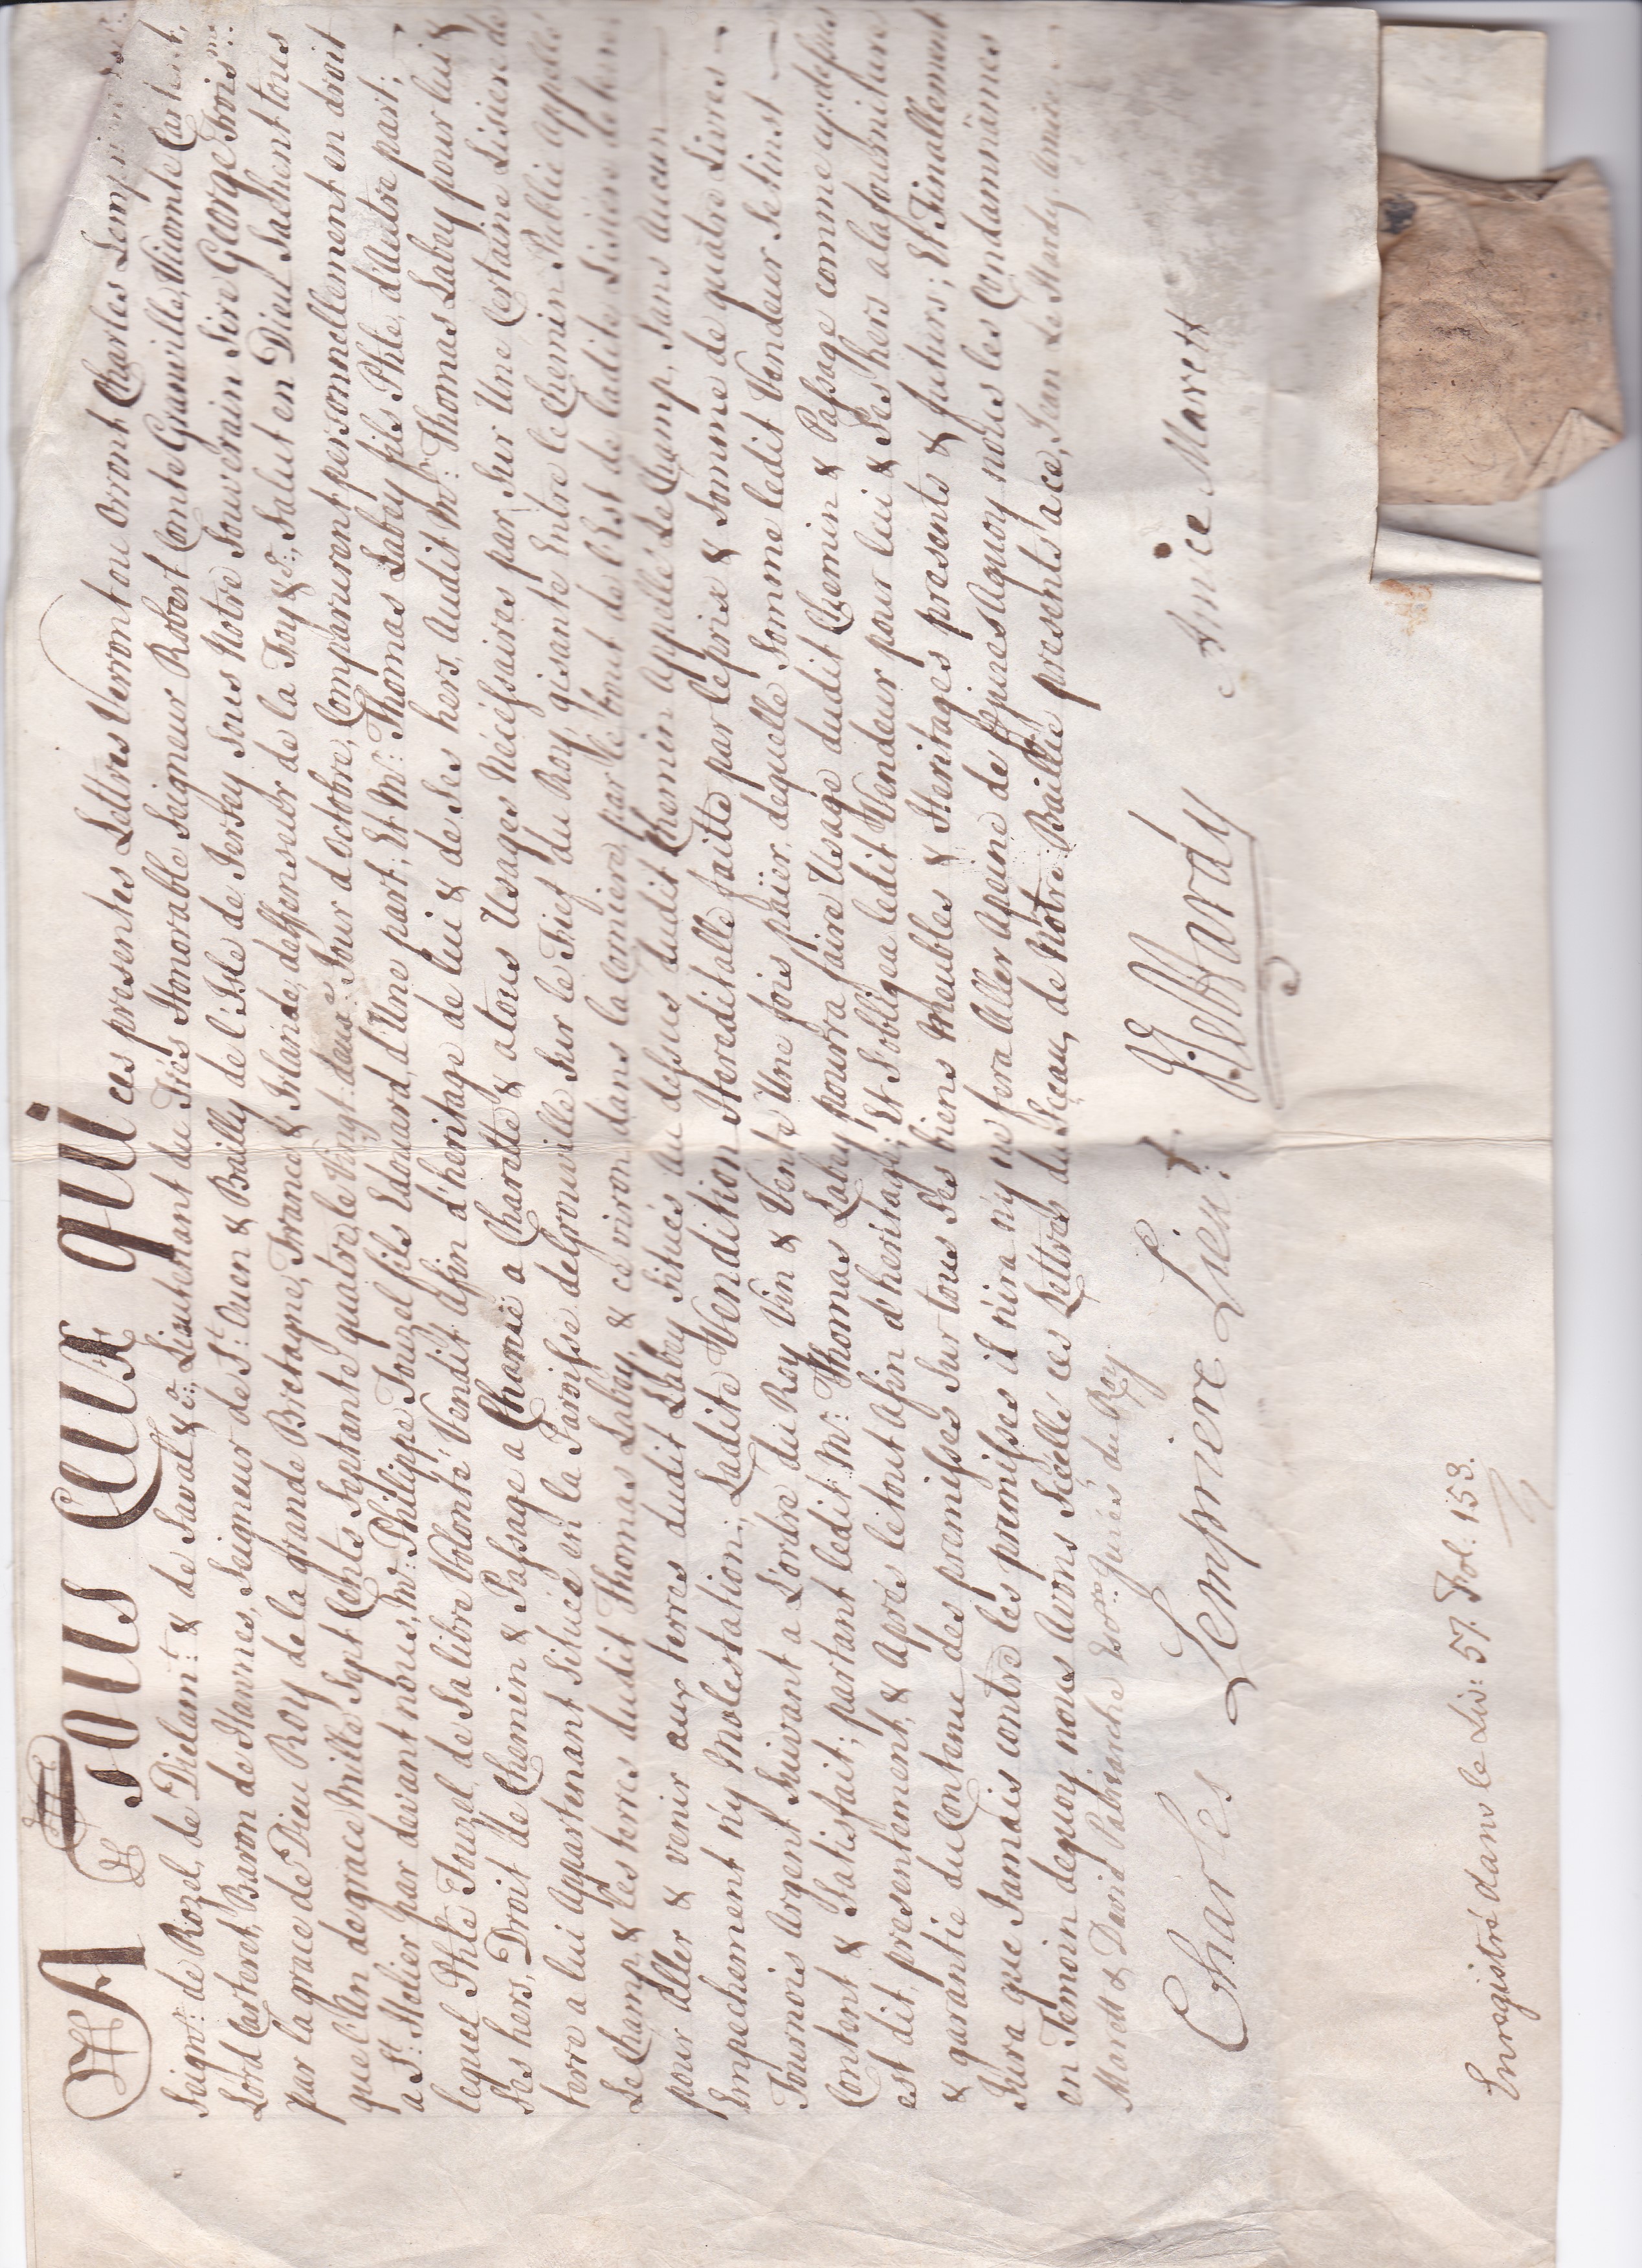 A Tous Ceux qui ces presentes Lettres Verront ou Orront Charles Lempriere
Seignr: de Rozel, de Dielamt: & de Saval &c:, Lieutenant du Trés Honorable Seigneur Robert Comte Granville, Vicomte Carteret,
Lord Carteret, Baron de Hawnes, Seigneur de St: Ouen & Bailly de l'Isle de Jersey sous Notre Souverain Sire George Trois me:
par la grace de Dieu Roy de la grande Bretagne, France & Irlande, deffenseur de la Foy &c:, Salut en Dieu Sachent tous
que l'An de grace Mille Sept Cents Septante quatre, le Vingt: deuxe: Jour d'Octobre, Comparurent personnellement en droit
a St: Helier par devant nous, Mr: Philippe Touzel fils Edouard, d'Une part, Et Mr: Thomas Labey fils Phle, d'Autre part;
lequel Phle Touzel, de Sa libre Volonté, Vendit afin d'heritage de lui & de Ses hers, audit Mr: Thomas Labey pour lui &
Ses hers, Droit de Chemin & Passage a Charuë a Charette & a tous Usages Nécéssaires par Sur Une Certaine Lisiere de
terre a lui Appartenant Situeé en la Paroisse de Grouville Sur le Fief du Roy, gisante Entre le Chemin Publie Appellé
Le Champ, & les terres dudit Thomas Labey, & ce viron dans la Comiere, par le bout de l'Est de ladite Lisiere de terre
pour Aller & venir aux terres dudit Labey Situés au dessus dudit Chemin Appellé Le Champ, Sans aucun
Empechement n'y Molestation; Ladite Vendition Hereditalle faitte par le prix & Somme de quatre Livres
Tournois Argent Suivant a L'ordre du Roy Vin & Vente Une fois païer, dequelle Somme ledit Vendeur Se tinst
Content & Satisfait; partant ledit Mr: Thomas Labey pourra faire Usage dudit Chemin & Passage comme cy: dessus
est dit, presentement, & Aprés le tout afin d'heritage; Et S'obligea ledit Vendeur pour lui & Ses hers a la fourniture
& garantie du Contenu des premisses Sur tous Ses biens Meubles & Heritages presents & futurs; Et Finallement
Jura que Jamais contre les premisses il n'ira n'y ne fera Aller a peine de Perjure; Aquoy nous les Condamnâmes
en Temoin dequoy nous Avons Scellé ces Lettres du Sceau, de Nôtre Baillie presents a ce, Jean Le Hardy, Amice
Marett & David Patriarche Esqrs: Jurés du Roy.
Charles Lempriere Lieut: J: LeHardy Amice Marett
Enregistré dans le Liv: 57. Fol: 153.